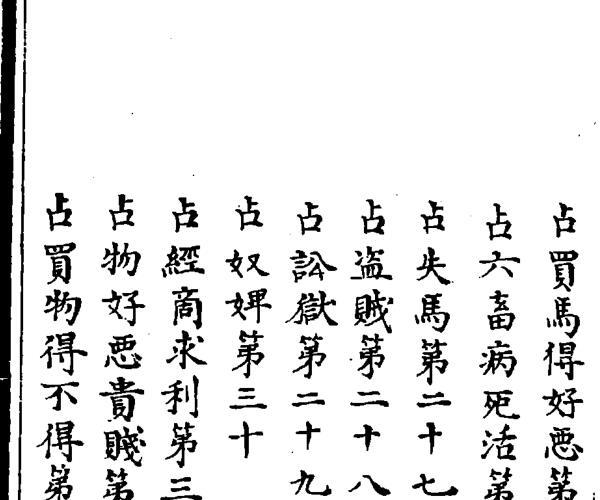 占買馬得好惡第
占六畜病死活第
占失馬第二十七
占盗賊第二十八
占訟獄第二十九
占奴婢第三十
占經商求利第三
占物好惡貴賤第
占買物得不得第